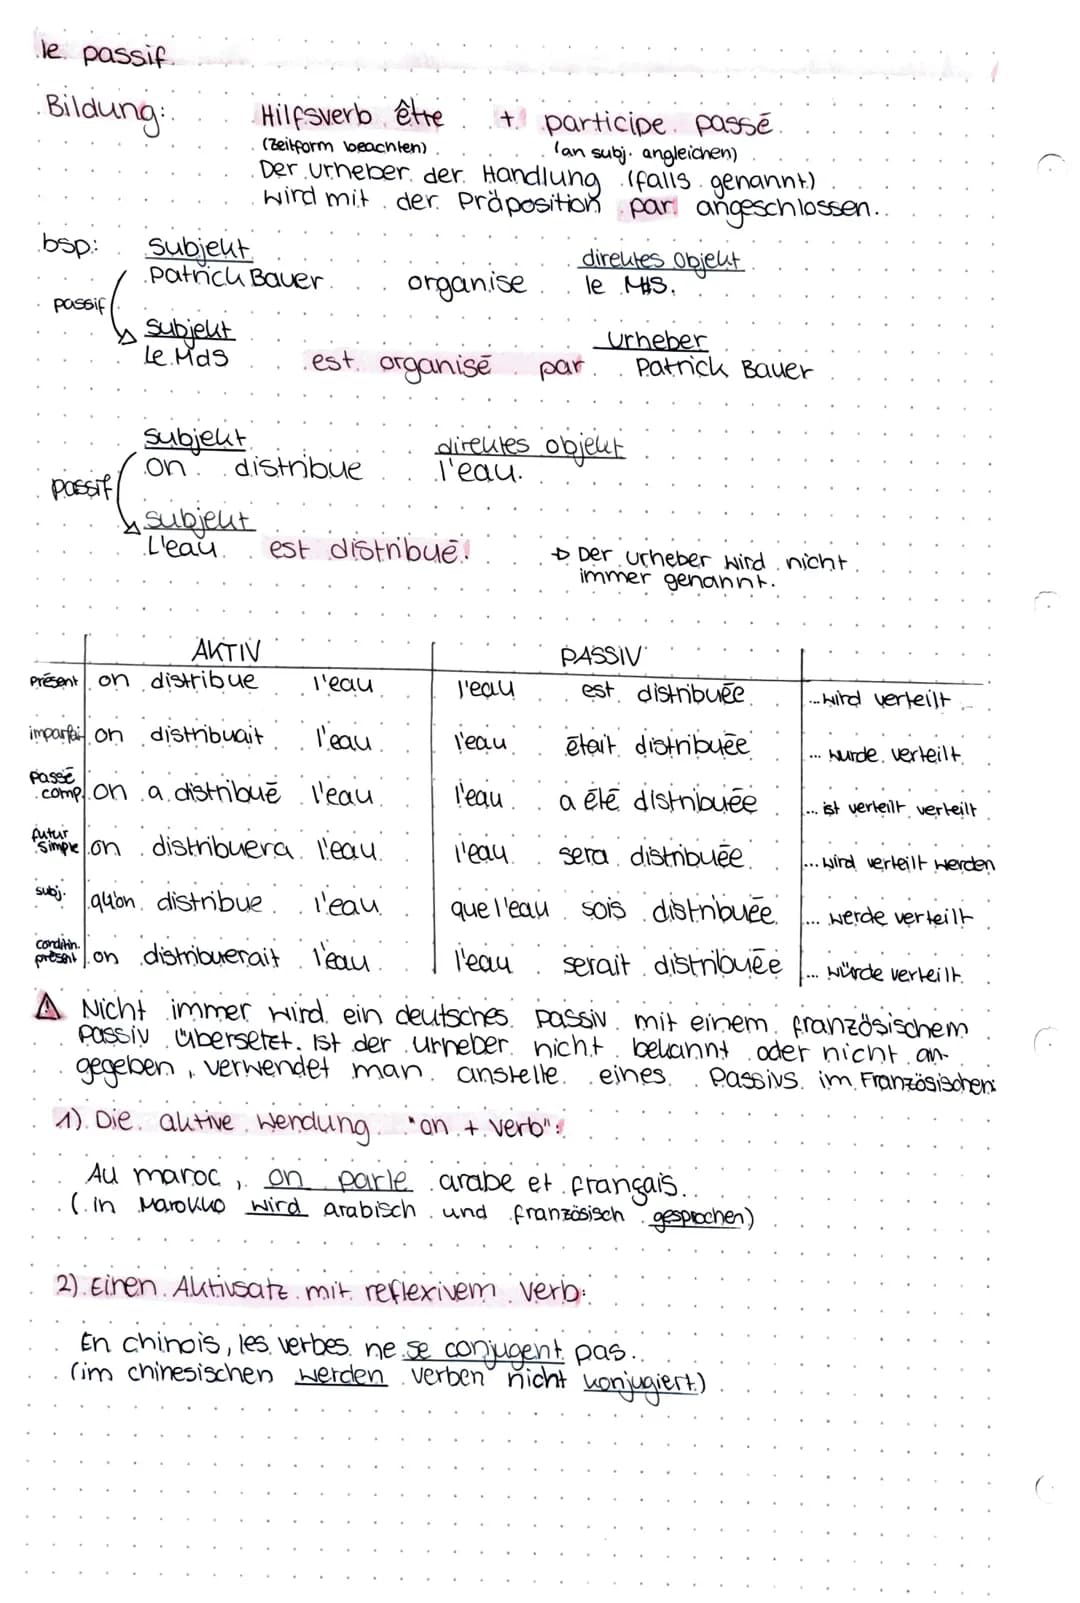 le passif
Bildung: Hilfsverb être + participe passé
(Zeitform beachten) (an subj. angleichen)
Der Urheber der Handlung (falls genannt)
wird mit der Präposition par angeschlossen.
bsp: Subjekt direktes Objekt
Patrick Bauer organise le MdS.
passif
Subjekt Urheber
Le MdS est organisé par Patrick Bauer
Subjekt direktes Objekt
on distribue l'eau.
passif
Subjekt
L'eau est distribué.
→ Der Urheber wird nicht
immer genannt.
AKTIV PASSIV
Présent on distribue l'eau l'eau est distribuée ...wird verteilt
imparfait on distribuait l'eau l'eau était distribuée ... wurde verteilt
passé comp. on a distribué l'eau l'eau a été distribuée ... ist verteilt verteilt
futur simple on distribuera l'eau l'eau sera distribuée ... wird verteilt werden
subj. qu'on distribue l'eau que l'eau sois distribuée ... werde verteilt
conditin. présent on distribuerait l'eau l'eau serait distribuée ... würde verteilt
⚠ Nicht immer wird ein deutsches Passiv mit einem französischem
Passiv übersetzt. Ist der Urheber nicht bekannt oder nicht an-
gegeben, verwendet man anstelle eines Passivs im Französischen:
1) Die aktive Wendung "on + verb":
Au maroc, on parle arabe et français.
(in Marokko wird arabisch und französisch gesprochen)
2) Einen Aktivsatz mit reflexivem Verb:
En chinois, les verbes ne se conjugent pas.
(im chinesischen werden verben nicht konjugiert)